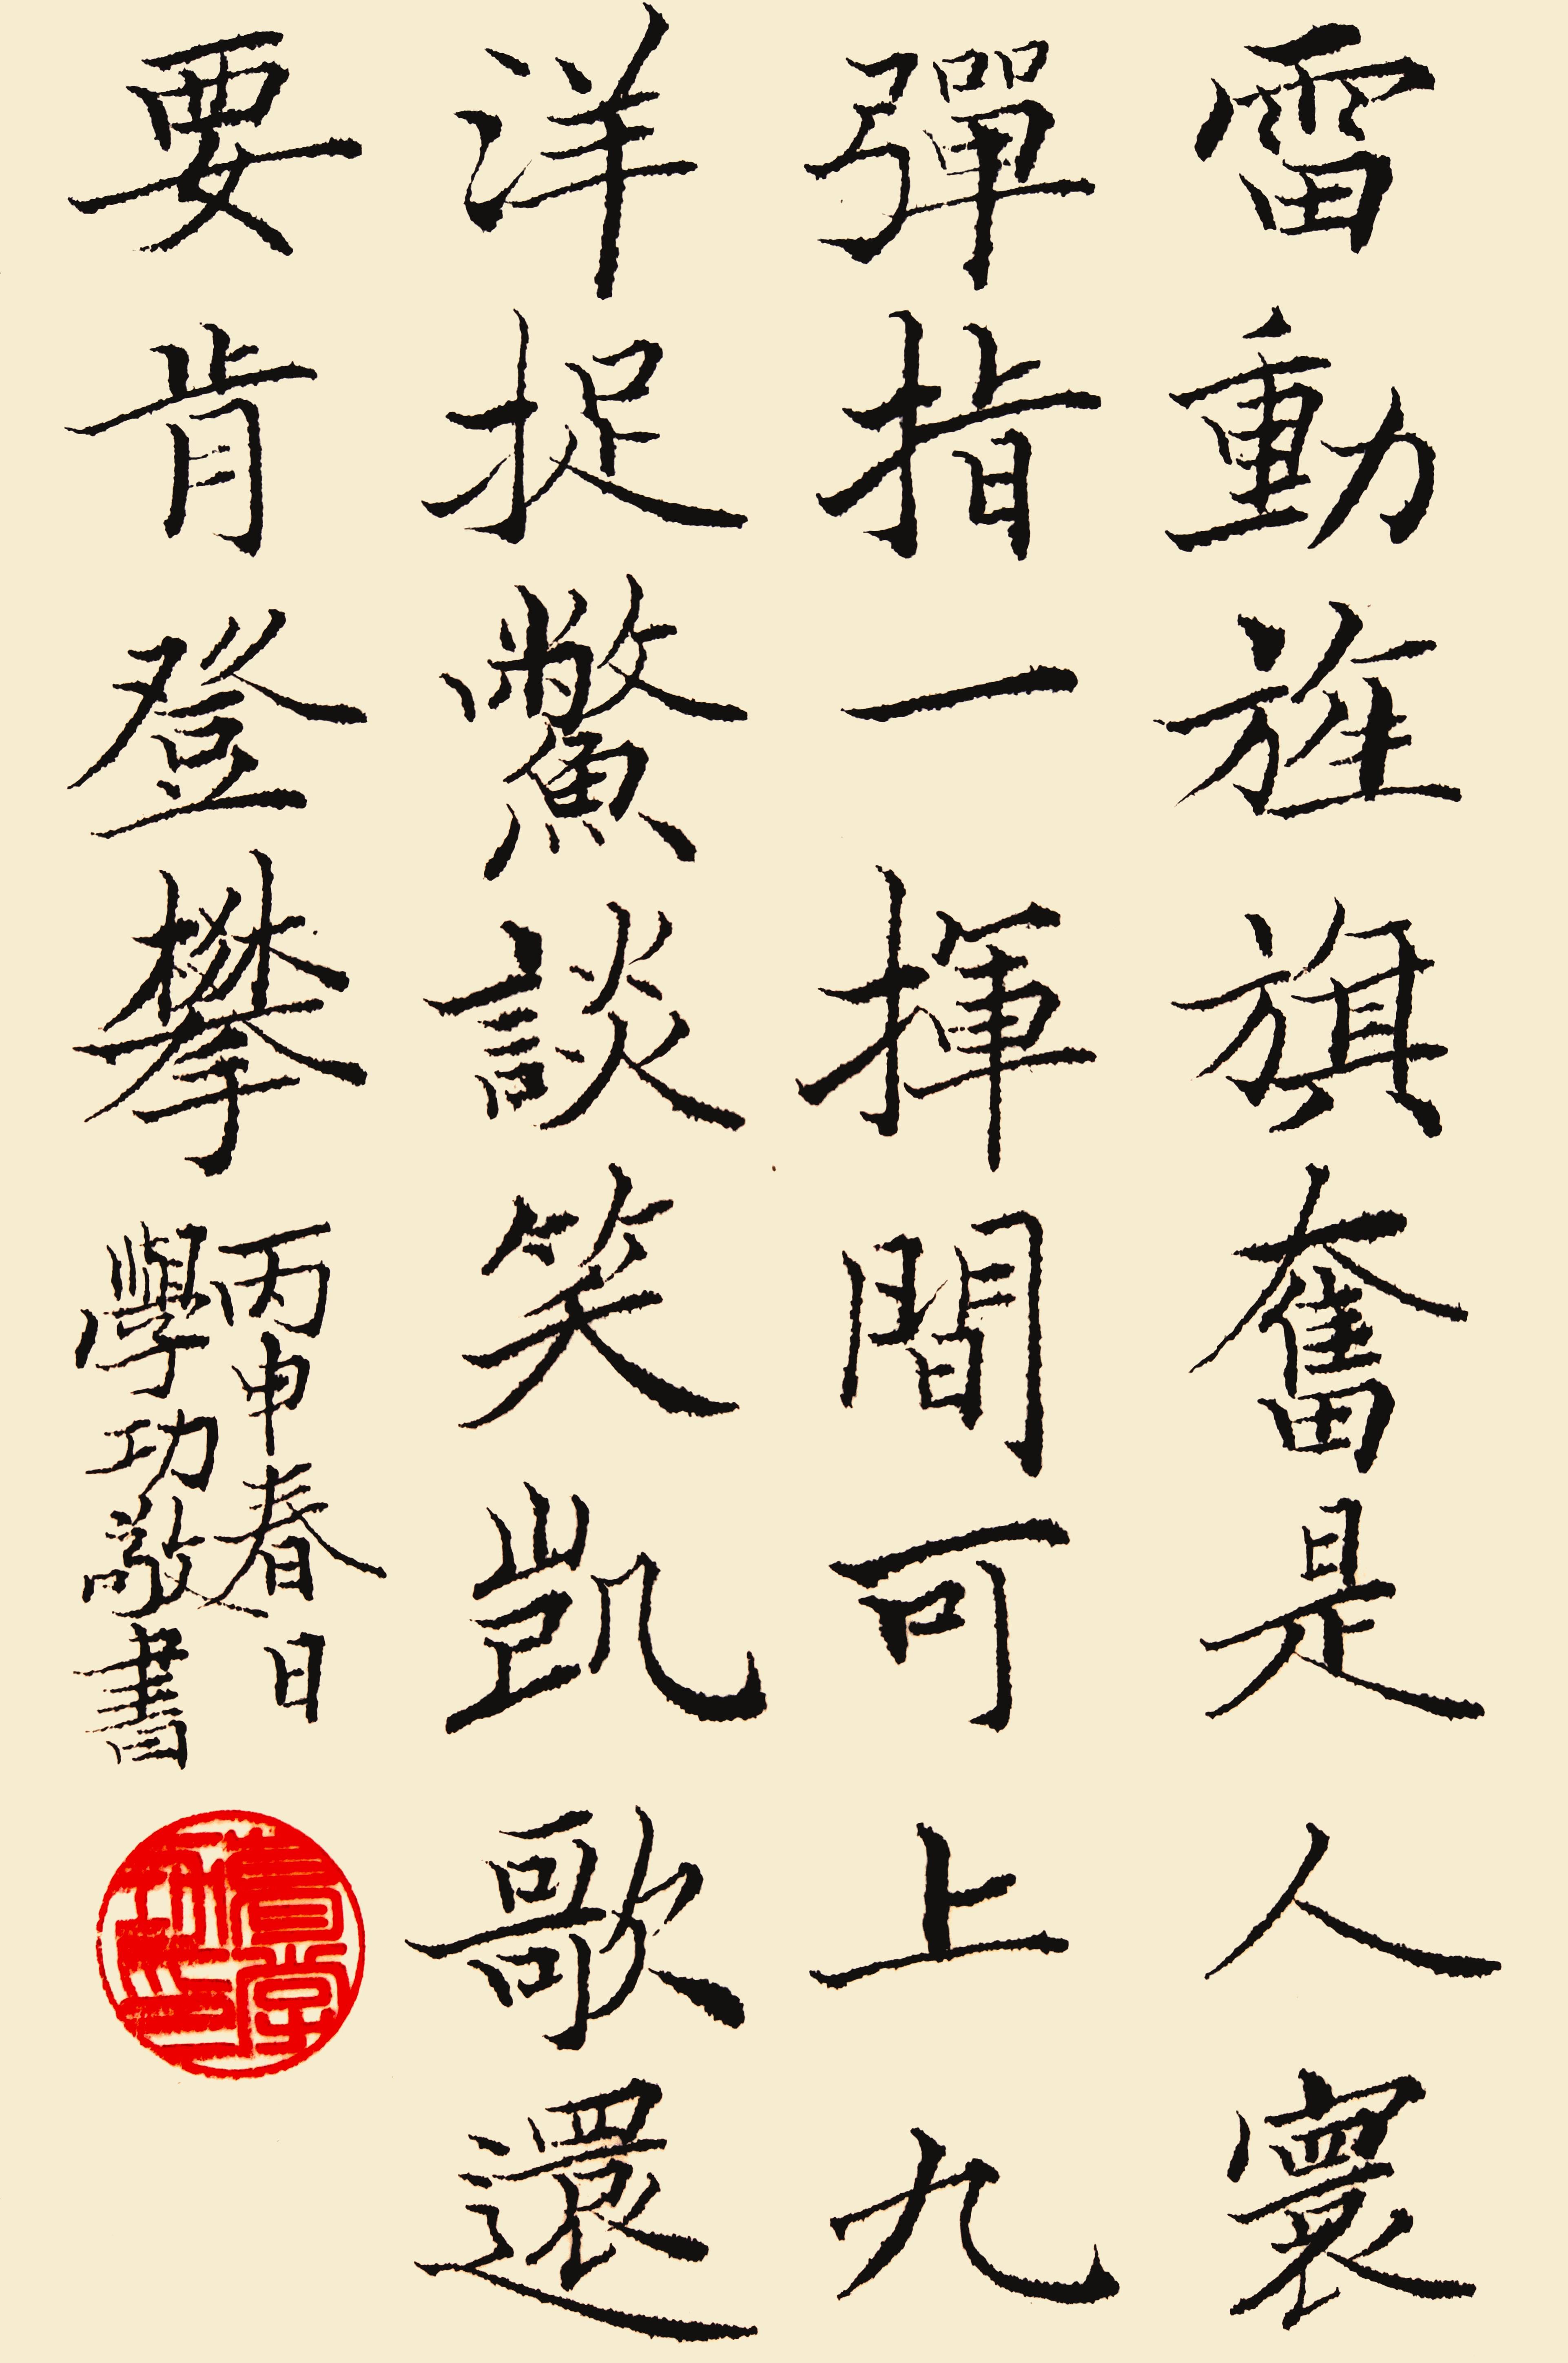 雷動旌旗奮是人寰
彈指一揮間可上九
洋捉鱉談笑凱歌還
要肯登攀
丙申春日
學功敬書